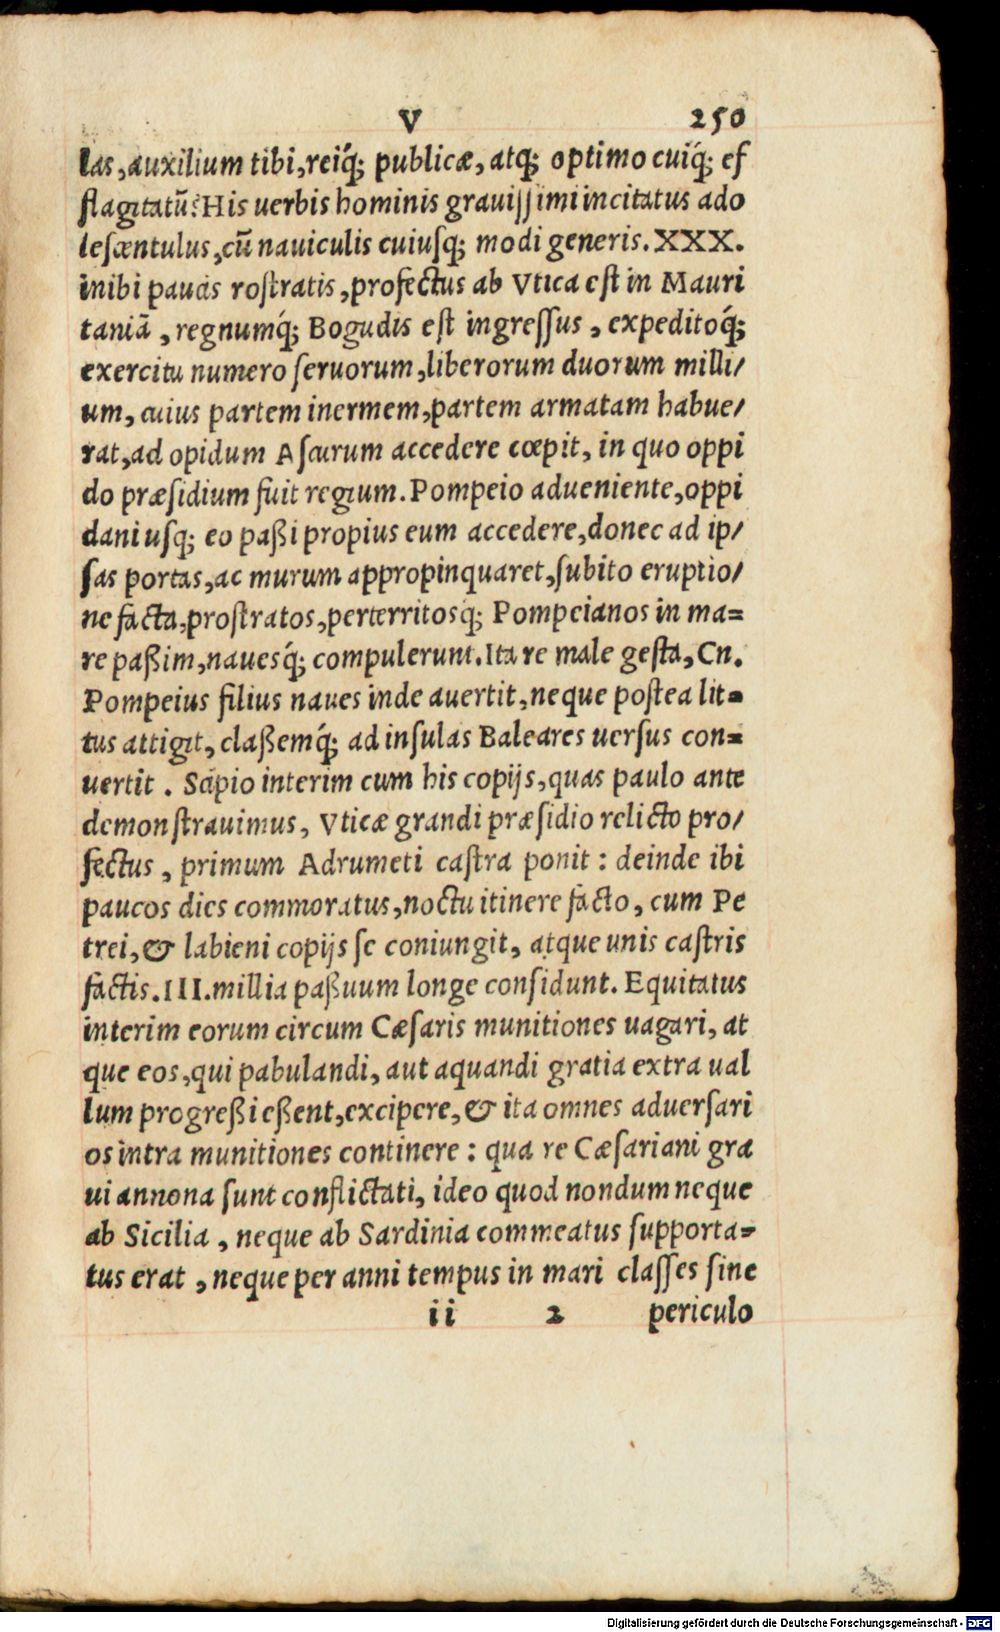 V 250
las, auxilium tibi, reiq́; publicæ, atq; optimo cuiq́; ef
flagitatũ? His uerbis hominis grauissimi incitatus ado
lescentulus, cũ nauiculis cuiusq; modi generis. XXX.
inibi paucis rostratis, profectus ab Vtica est in Mauri
taniã, regnumq́; Bogudis est ingressus, expeditoq́;
exercitu numero seruorum, liberorum duorum milli/
um, cuius partem inermem, partem armatam habue/
rat, ad opidum Ascurum accedere cœpit, in quo oppi
do præsidium fuit regium. Pompeio adueniente, oppi
dani usq; eo paßi propius eum accedere, donec ad ip/
sas portas, ac murum appropinquaret, subito eruptio/
ne facta, prostratos, perterritosq; Pompeianos in ma=
re paßim, nauesq́; compulerunt. Ita re male gesta, Cn.
Pompeius filius naues inde auertit, neque postea lit=
tus attigit, claßemq́; ad insulas Baleares uersus con=
uertit. Scipio interim cum his copijs, quas paulo ante
demonstrauimus, Vticæ grandi præsidio relicto pro/
fectus, primum Adrumeti castra ponit: deinde ibi
paucos dies commoratus, noctu itinere facto, cum Pe
trei, & labieni copijs se coniungit, atque unis castris
factis. III. millia paßuum longe considunt. Equitatus
interim eorum circum Cæsaris munitiones uagari, at
que eos, qui pabulandi, aut aquandi gratia extra ual
lum progreßi eßent, excipere, & ita omnes aduersari
os intra munitiones continere: qua re Cæsariani gra
ui annona sunt conflictati, ideo quod nondum neque
ab Sicilia, neque ab Sardinia commeatus supporta=
tus erat, neque per anni tempus in mari classes sine
ii 2 periculo
Digitalisierung gefördert durch die Deutsche Forschungsgemeinschaft - DFG